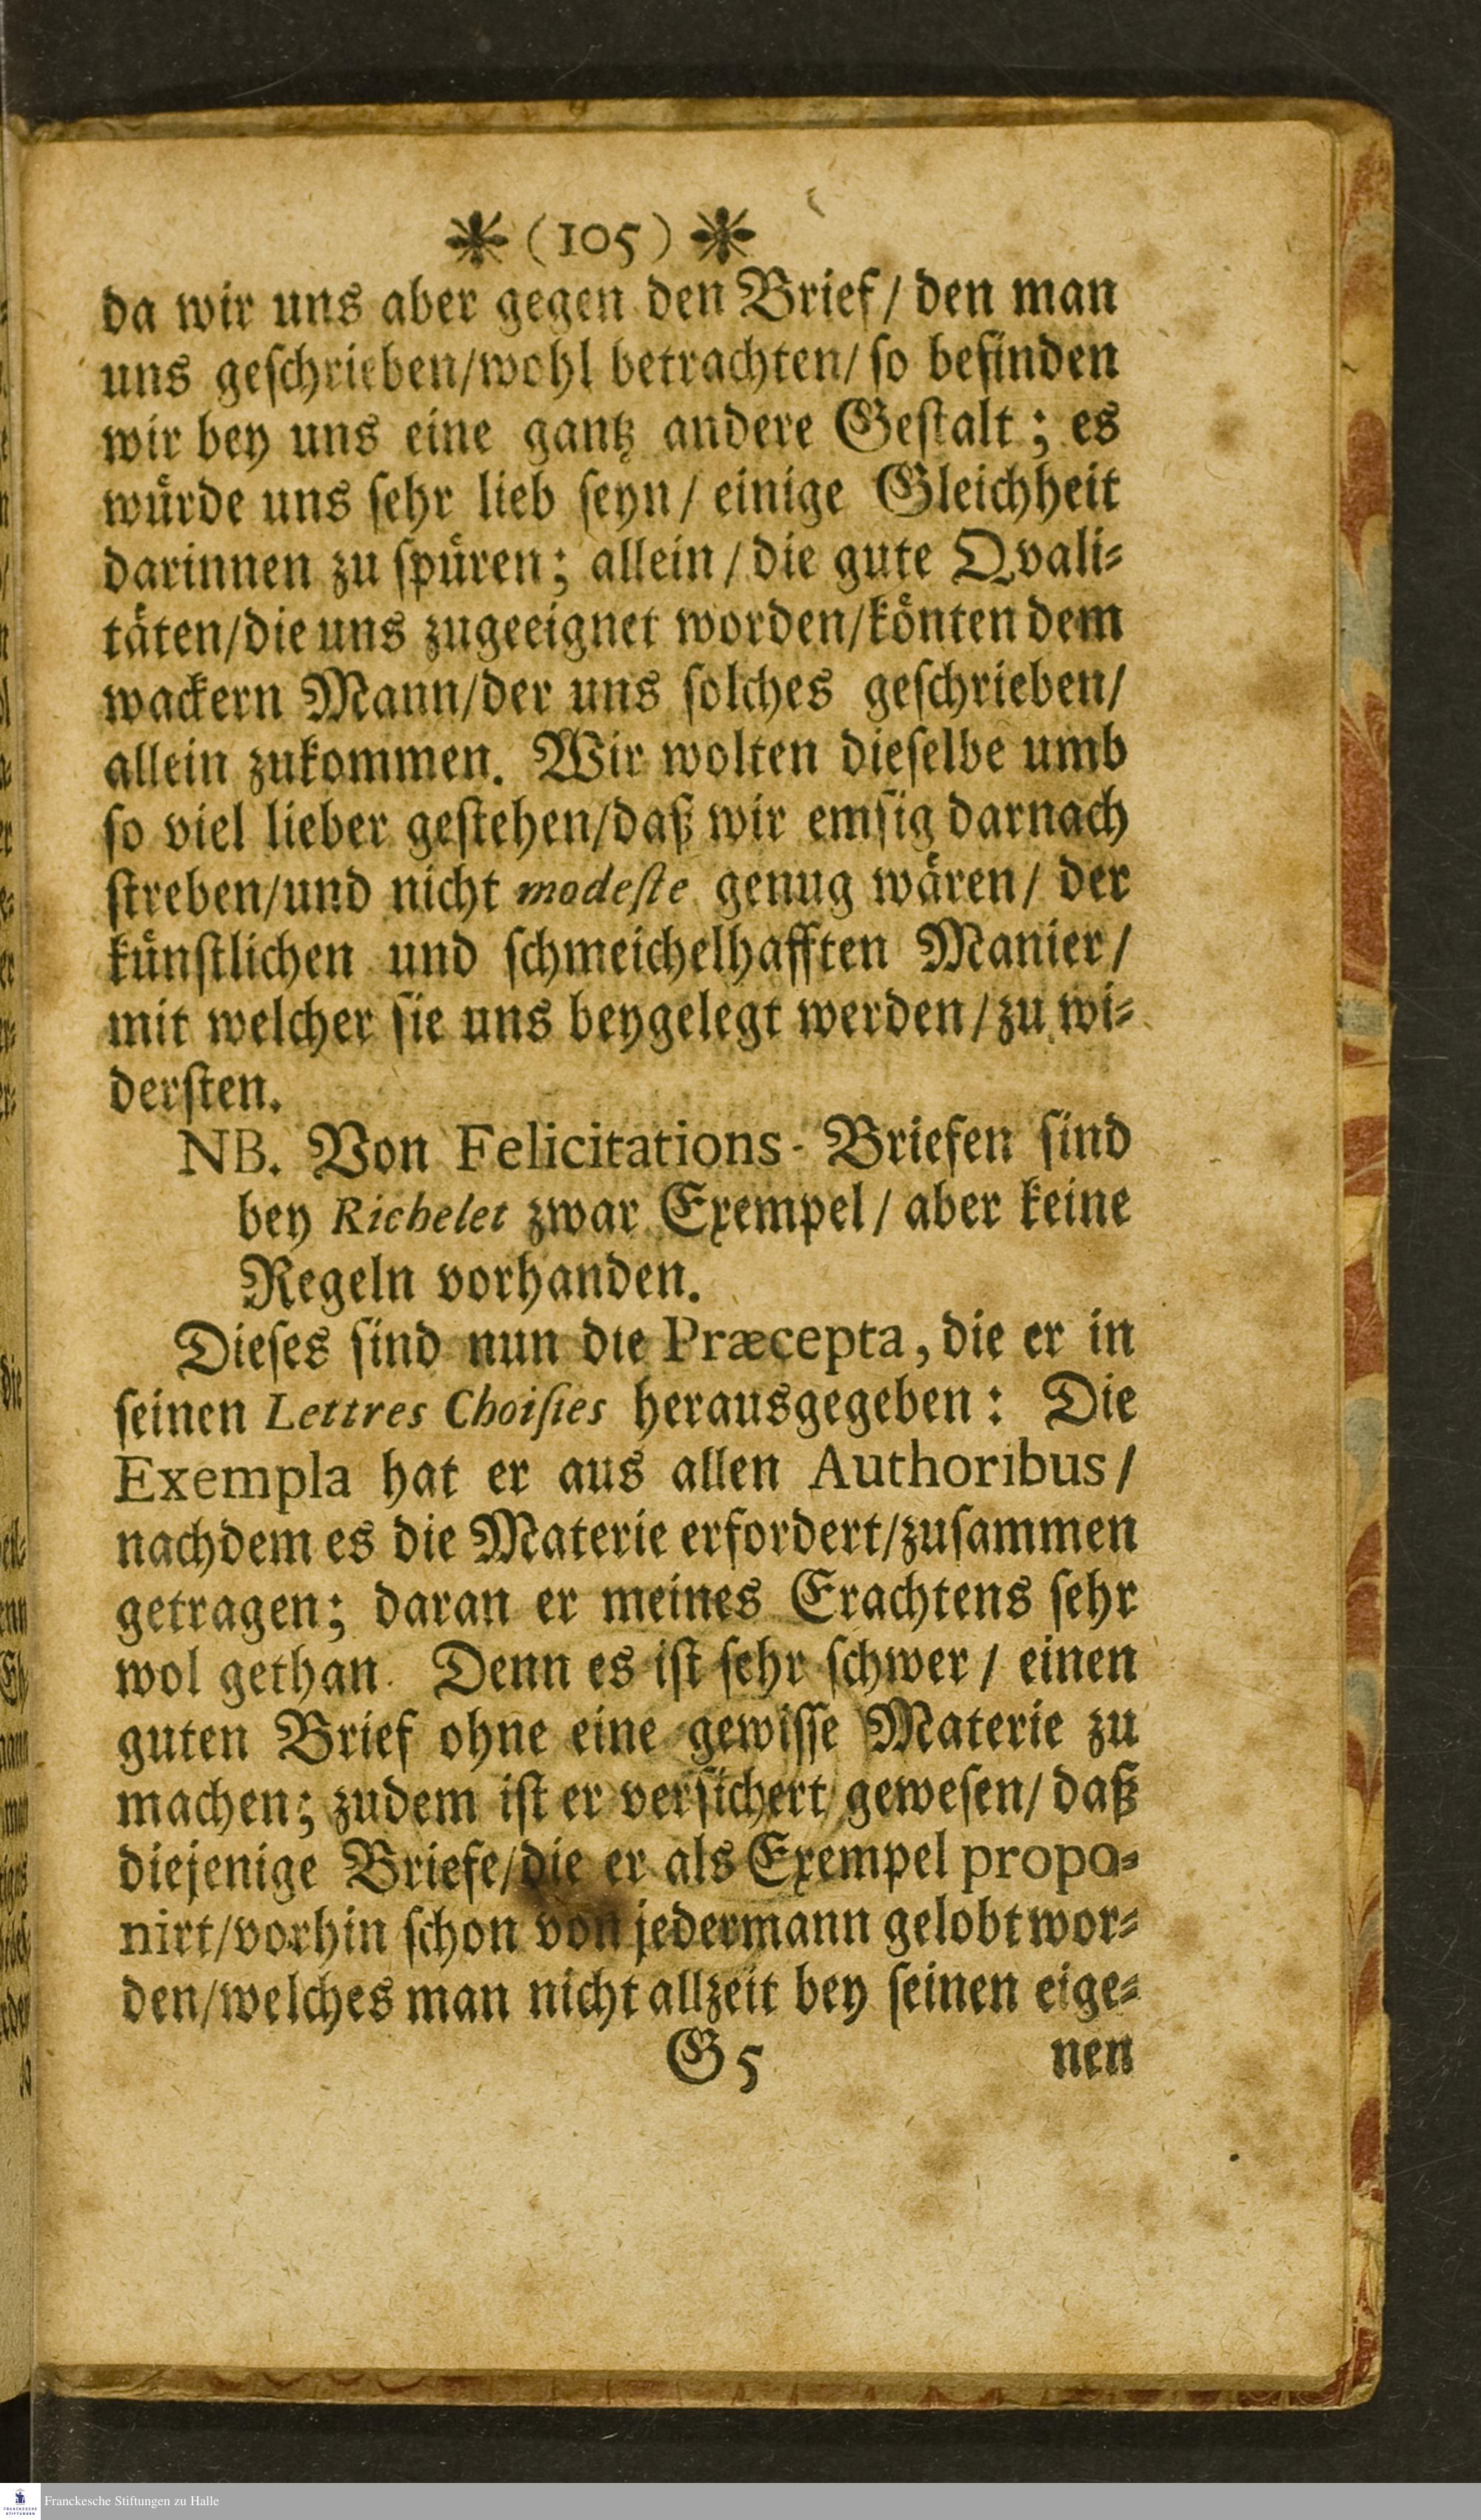 (105)
da wir uns aber gegen den Brief/ den man
uns geschrieben/wohl betrachten/ so befinden
wir bey uns eine gantz andere Gestalt; es
würde uns sehr lieb seyn/ einige Gleichheit
darinnen zu spüren; allein/ die gute Qvali-
täten/die uns zugeeignet worden/könten dem
wackern Mann/der uns solches geschrieben/
allein zukommen. Wir wolten dieselbe umb
so viel lieber gestehen/daß wir emsig darnach
streben/und nicht modeste genug wären/ der
künstlichen und schmeichelhafften Manier/
mit welcher sie uns beygelegt werden/zu wi-
dersten.
NB. Von Felicitations-Briefen sind
bey Richelet zwar Exempel/ aber keine
Regeln vorhanden.
Dieses sind nun die Præcepta, die er in
seinen Lettres Choisies herausgegeben: Die
Exempla hat er aus allen Authoribus/
nachdem es die Materie erfordert/zusammen
getragen; daran er meines Erachtens sehr
wol gethan. Denn es ist sehr schwer/ einen
guten Brief ohne eine gewisse Materie zu
machen; zudem ist er versichert gewesen/ daß
diejenige Briefe/die er als Exempel propo-
nirt/vorhin schon von jedermann gelobt wor-
den/welches man nicht allzeit bey seinen eige-
G 5 nen
Franckesche Stiftungen zu Halle